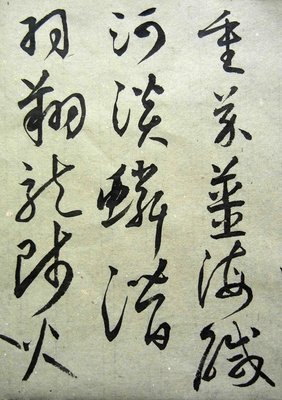 重芥薑海醎
河淡鱗潛
羽翔龍師火